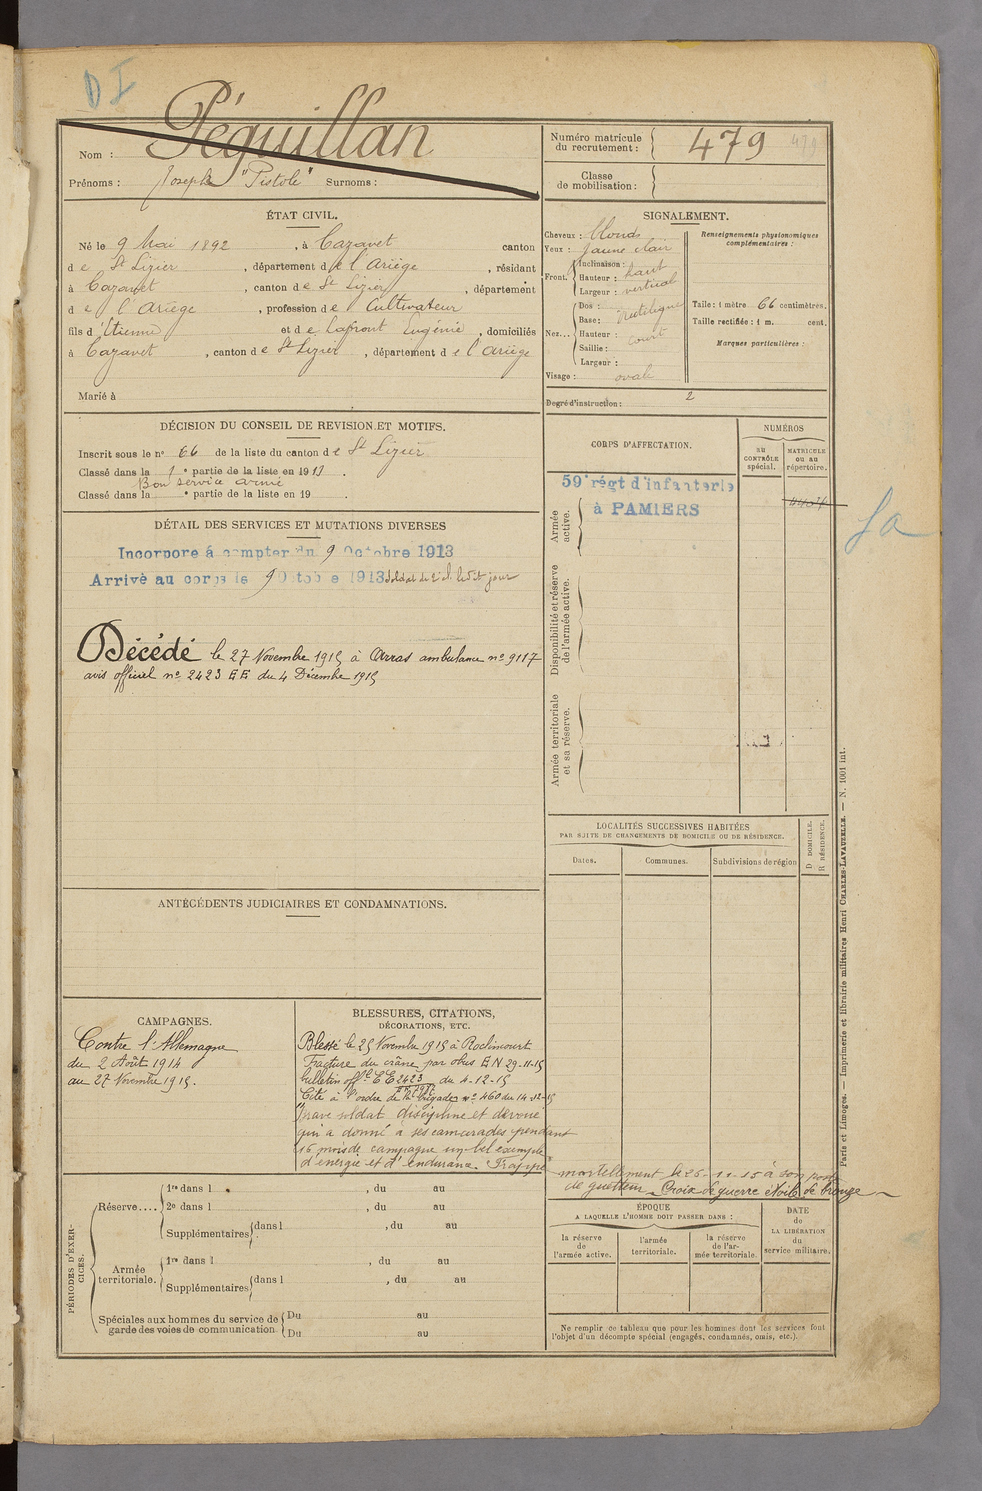 D I
Péquillan
Nom :
Prénoms : Joseph "Pistole" Surnoms :
Numéro matricule
du recrutement : 479 479
Classe
de mobilisation :
ÉTAT CIVIL.
Né le 9 Mai 1892, à Cazavet canton
de St Lizier, département de l'Ariège, résidant
à Cazavet, canton de St Lizier, département
de l'Ariège, profession de Cultivateur
fils d'Etienne et de Lafront Eugénie, domiciliés
à Cazavet, canton de St Lizier, département de l'Ariège
Marié à
SIGNALEMENT.
Cheveux : blonds
Yeux : jaune clair
Front. Inclinaison :
Hauteur : haut
Largeur : vertical
Nez... Dos :
Base : rectiligne
Hauteur : court
Saillie :
Largeur :
Visage : ovale
Renseignements physionomiques
complémentaires :
Taille : 1 mètre 66 centimètres.
Taille rectifiée : 1 m. cent.
Marques particulières :
Degré d'instruction : 2
DÉCISION DU CONSEIL DE REVISION ET MOTIFS.
Inscrit sous le no 66 de la liste du canton de St Lizier
Classé dans la 1e partie de la liste en 1913.
Bon service armé
Classé dans la e partie de la liste en 19 .
DÉTAIL DES SERVICES ET MUTATIONS DIVERSES
Incorporé à compter du 9 Octobre 1913
Arrivé au corps le 9 Octobre 1913 soldat de 2e cl. ledit jour
Décédé le 27 Novembre 1915 à Arras ambulance no 9117
avis officiel no 2423 EE du 4 Décembre 1915
CORPS D'AFFECTATION.
NUMÉROS
au
CONTRÔLE
spécial.
MATRICULE
ou au
répertoire.
Armée
active.
59e régt d'infanterie
à PAMIERS
fa
Disponibilité et réserve
de l'armée active.
Armée territoriale
et sa réserve.
LOCALITÉS SUCCESSIVES HABITÉES
PAR SUITE DE CHANGEMENTS DE DOMICILE OU DE RÉSIDENCE.
Dates.
Communes.
Subdivisions de région
D DOMICILE.
R RÉSIDENCE.
ANTÉCÉDENTS JUDICIAIRES ET CONDAMNATIONS.
CAMPAGNES.
Contre l'Allemagne
du 2 Août 1914
au 27 Novembre 1915.
BLESSURES, CITATIONS,
DÉCORATIONS, ETC.
Blessé le 25 Novembre 1915 à Roclincourt
Fracture du crâne par obus EN 29-11-15
bulletin offel EE 2423 du 4-12-15
Cité à l'ordre de la brigade no 460 du 14-12-15
"brave soldat discipliné et dévoué
qui a donné à ses camarades pendant
16 mois de campagne un bel exemple
d'énergie et d'endurance. Frappé
mortellement le 25-11-15 à son poste
de guetteur. Croix de guerre étoile de bronze
PÉRIODES D'EXERCICES.
Réserve.... 1re dans l , du au
2e dans l , du au
Supplémentaires dans l , du au
Armée
territoriale. 1re dans l , du au
Supplémentaires dans l , du au
Spéciales aux hommes du service de
garde des voies de communication. Du au
Du au
ÉPOQUE
A LAQUELLE L'HOMME DOIT PASSER DANS :
la réserve
de
l'armée active.
l'armée
territoriale.
la réserve
de l'ar-
mée territoriale.
DATE
de
LA LIBÉRATION
du
service militaire.
Ne remplir ce tableau que pour les hommes dont les services font
l'objet d'un décompte spécial (engagés, condamnés, omis, etc.).
Paris et Limoges. — Imprimerie et librairie militaires Henri CHARLES-LAVAUZELLE. — N. 1001 int.